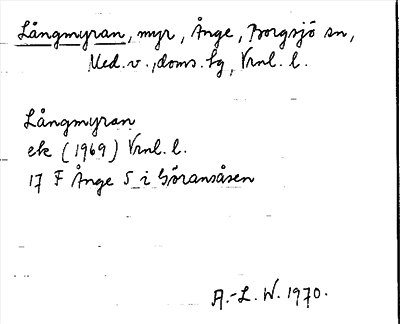 Långmyran, myr, Ånge, Borgsjö sn,
Med. v., doms. sg, Vrnl. l.
Långmyran
ek (1969) Vrnl. l.
17 F Ånge S i Göransåsen
A.-L. W. 1970.